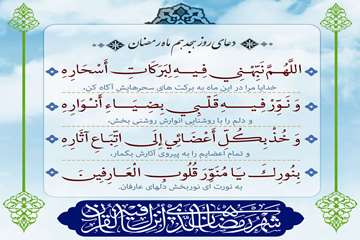 دعای روز هجدهم ماه رمضان
اللّهُمَّ نَبِّهْنِي فِيهِ لِبَرَكَاتِ أَسْحَارِهِ
خدایا مرا در این ماه به برکت های سحرهایش آگاه کن،
وَ نَوِّرْ فِيهِ قَلْبِي بِضِيَاءِ أَنْوَارِهِ
و دلم را با روشنایی انوارش روشنی بخش،
وَ خُذْ بِكُلِّ أَعْضَائِي إِلَى اتِّبَاعِ آثَارِهِ
و تمام اعضایم را به پیروی آثارش بگمار،
بِنُورِكَ يَا مُنَوِّرَ قُلُوبِ الْعَارِفِينَ
به نورت ای نوربخش دلهای عارفان.
شهر رمضان الذی أنزل فیه القرآن